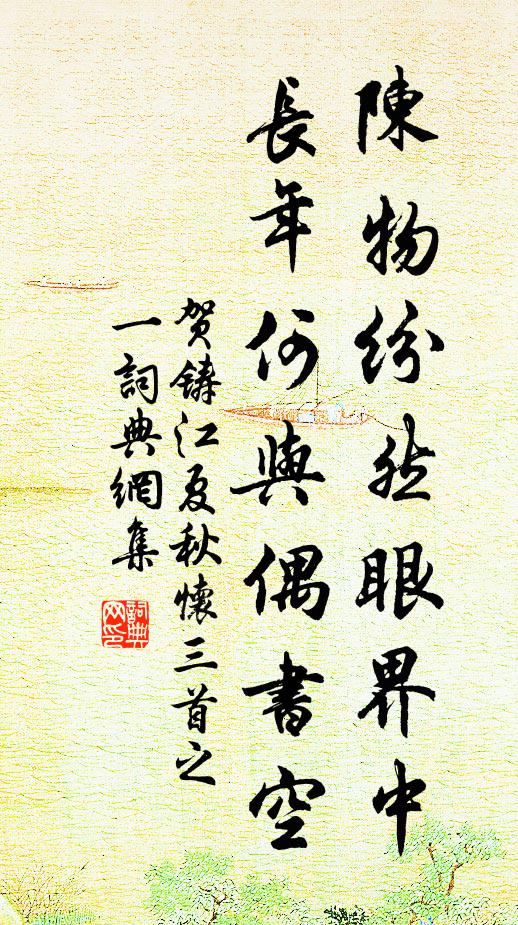 陳物紛然眼界中
長年何與偶書空
贺鑄江夏秋懷三首之
一詞典網集
詞典
网印